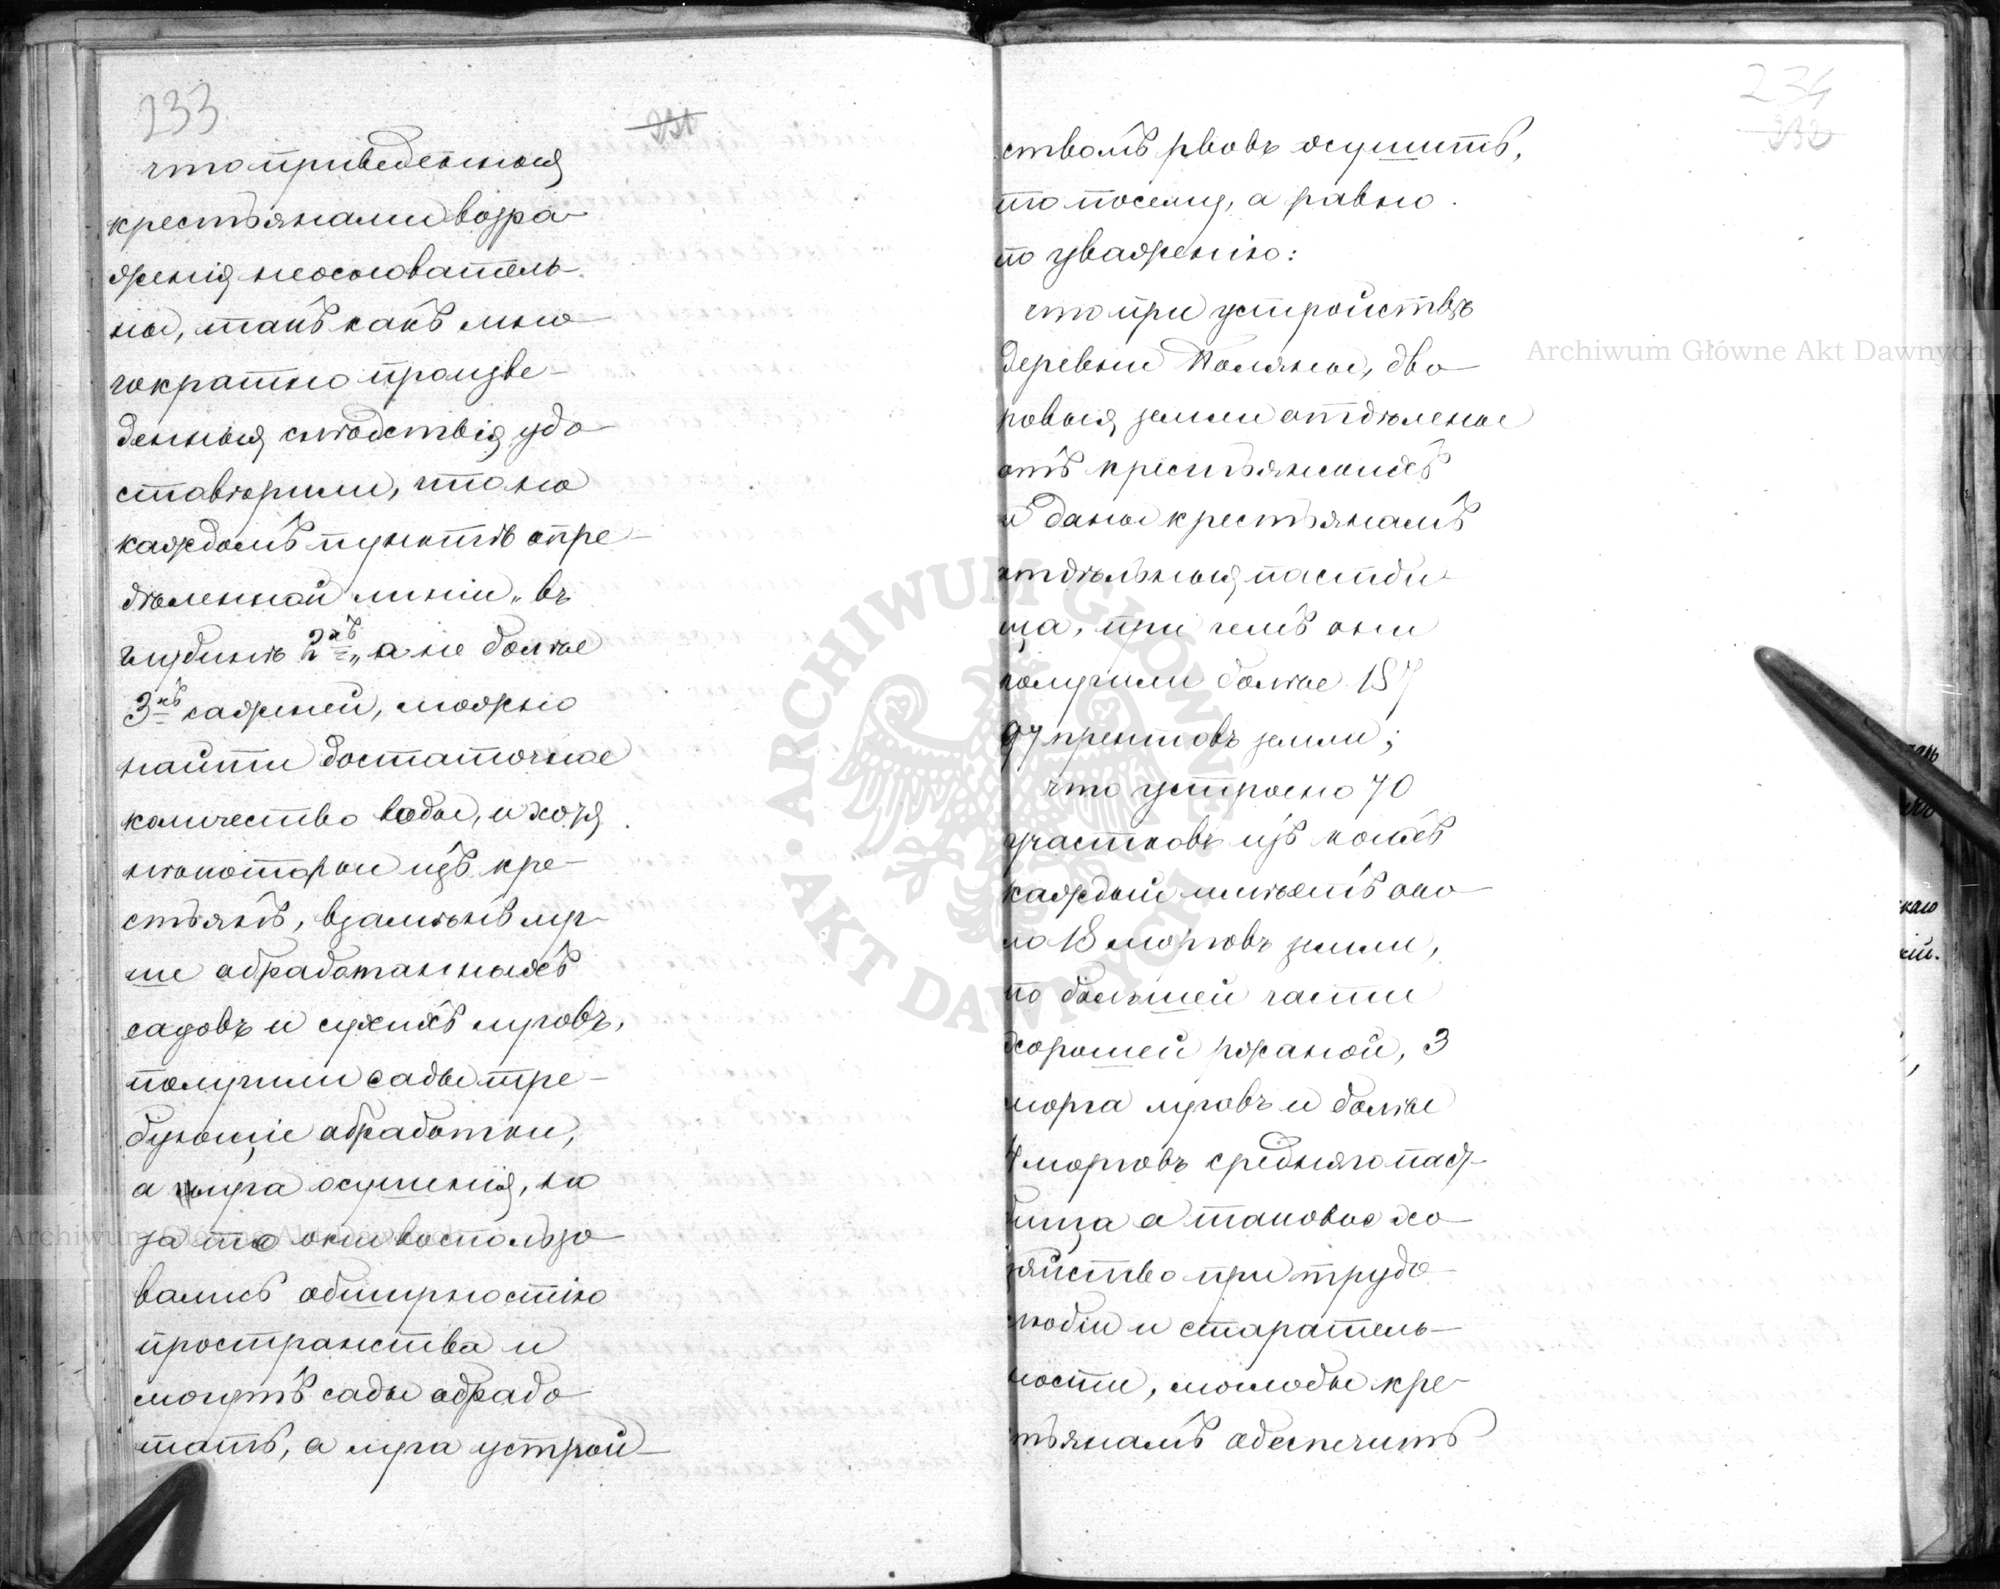 233
231
что приведенныя
крестьянами возра-
женія неоснователь-
ны, такъ какъ мно-
гократно произве-
денныя слѣдствія удо-
стовѣрили, что на
каждомъ пунктѣ опре-
дѣленной линіи „въ
глубинѣ 2хъ„ а не болѣе
3хъ саженей, можно
найти достаточное
количество воды, и хотя
нѣкоторыи изъ кре-
стьянъ, взамѣнъ луч-
ше обработанныхъ
садовъ и сухихъ луговъ,
получили сады тре-
бующіе обработки,
а луга осушенія, но
за то они воспользо-
вались обширностію
пространства и
могутъ сады обрабо-
тать, а луга устрой-
234
232
ствомъ рвовъ осушить,
то посему, а равно
по уваженію:
что при устройствѣ
деревни Поляны, дво-
ровыя земли отдѣлены
отъ крестьянскихъ
и даны крестьянамъ
отдѣльныя пастби-
ща, при чемъ они
получили болѣе 187
97 прентовъ земли;
что устроено 70
участковъ изъ коихъ
каждый имѣетъ око-
ло 18 морговъ земли,
по большей части
хорошей ржаной, 3
морга луговъ и болѣе
4 морговъ средняго паст-
бища а таковое хо-
зяйство при трудо-
любіи и старатель-
ности, молодые кре-
тьянамъ обеспечить
Archiwum Główne Akt Dawnych
Archiwum Główne Akt Dawnych
ARCHIWUM GŁÓWNE AKT DAWNYCH